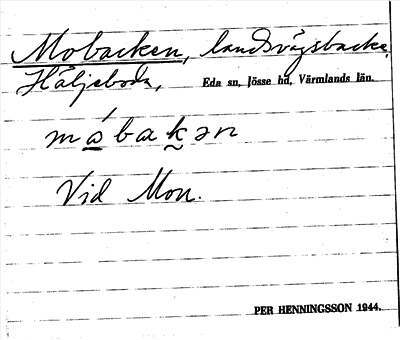 Mobacken, landsvägsbacke,
Häljeboda, Eda sn, Jösse hd, Värmlands län.
mábakən
Vid Mon.
PER HENNINGSSON 1944.